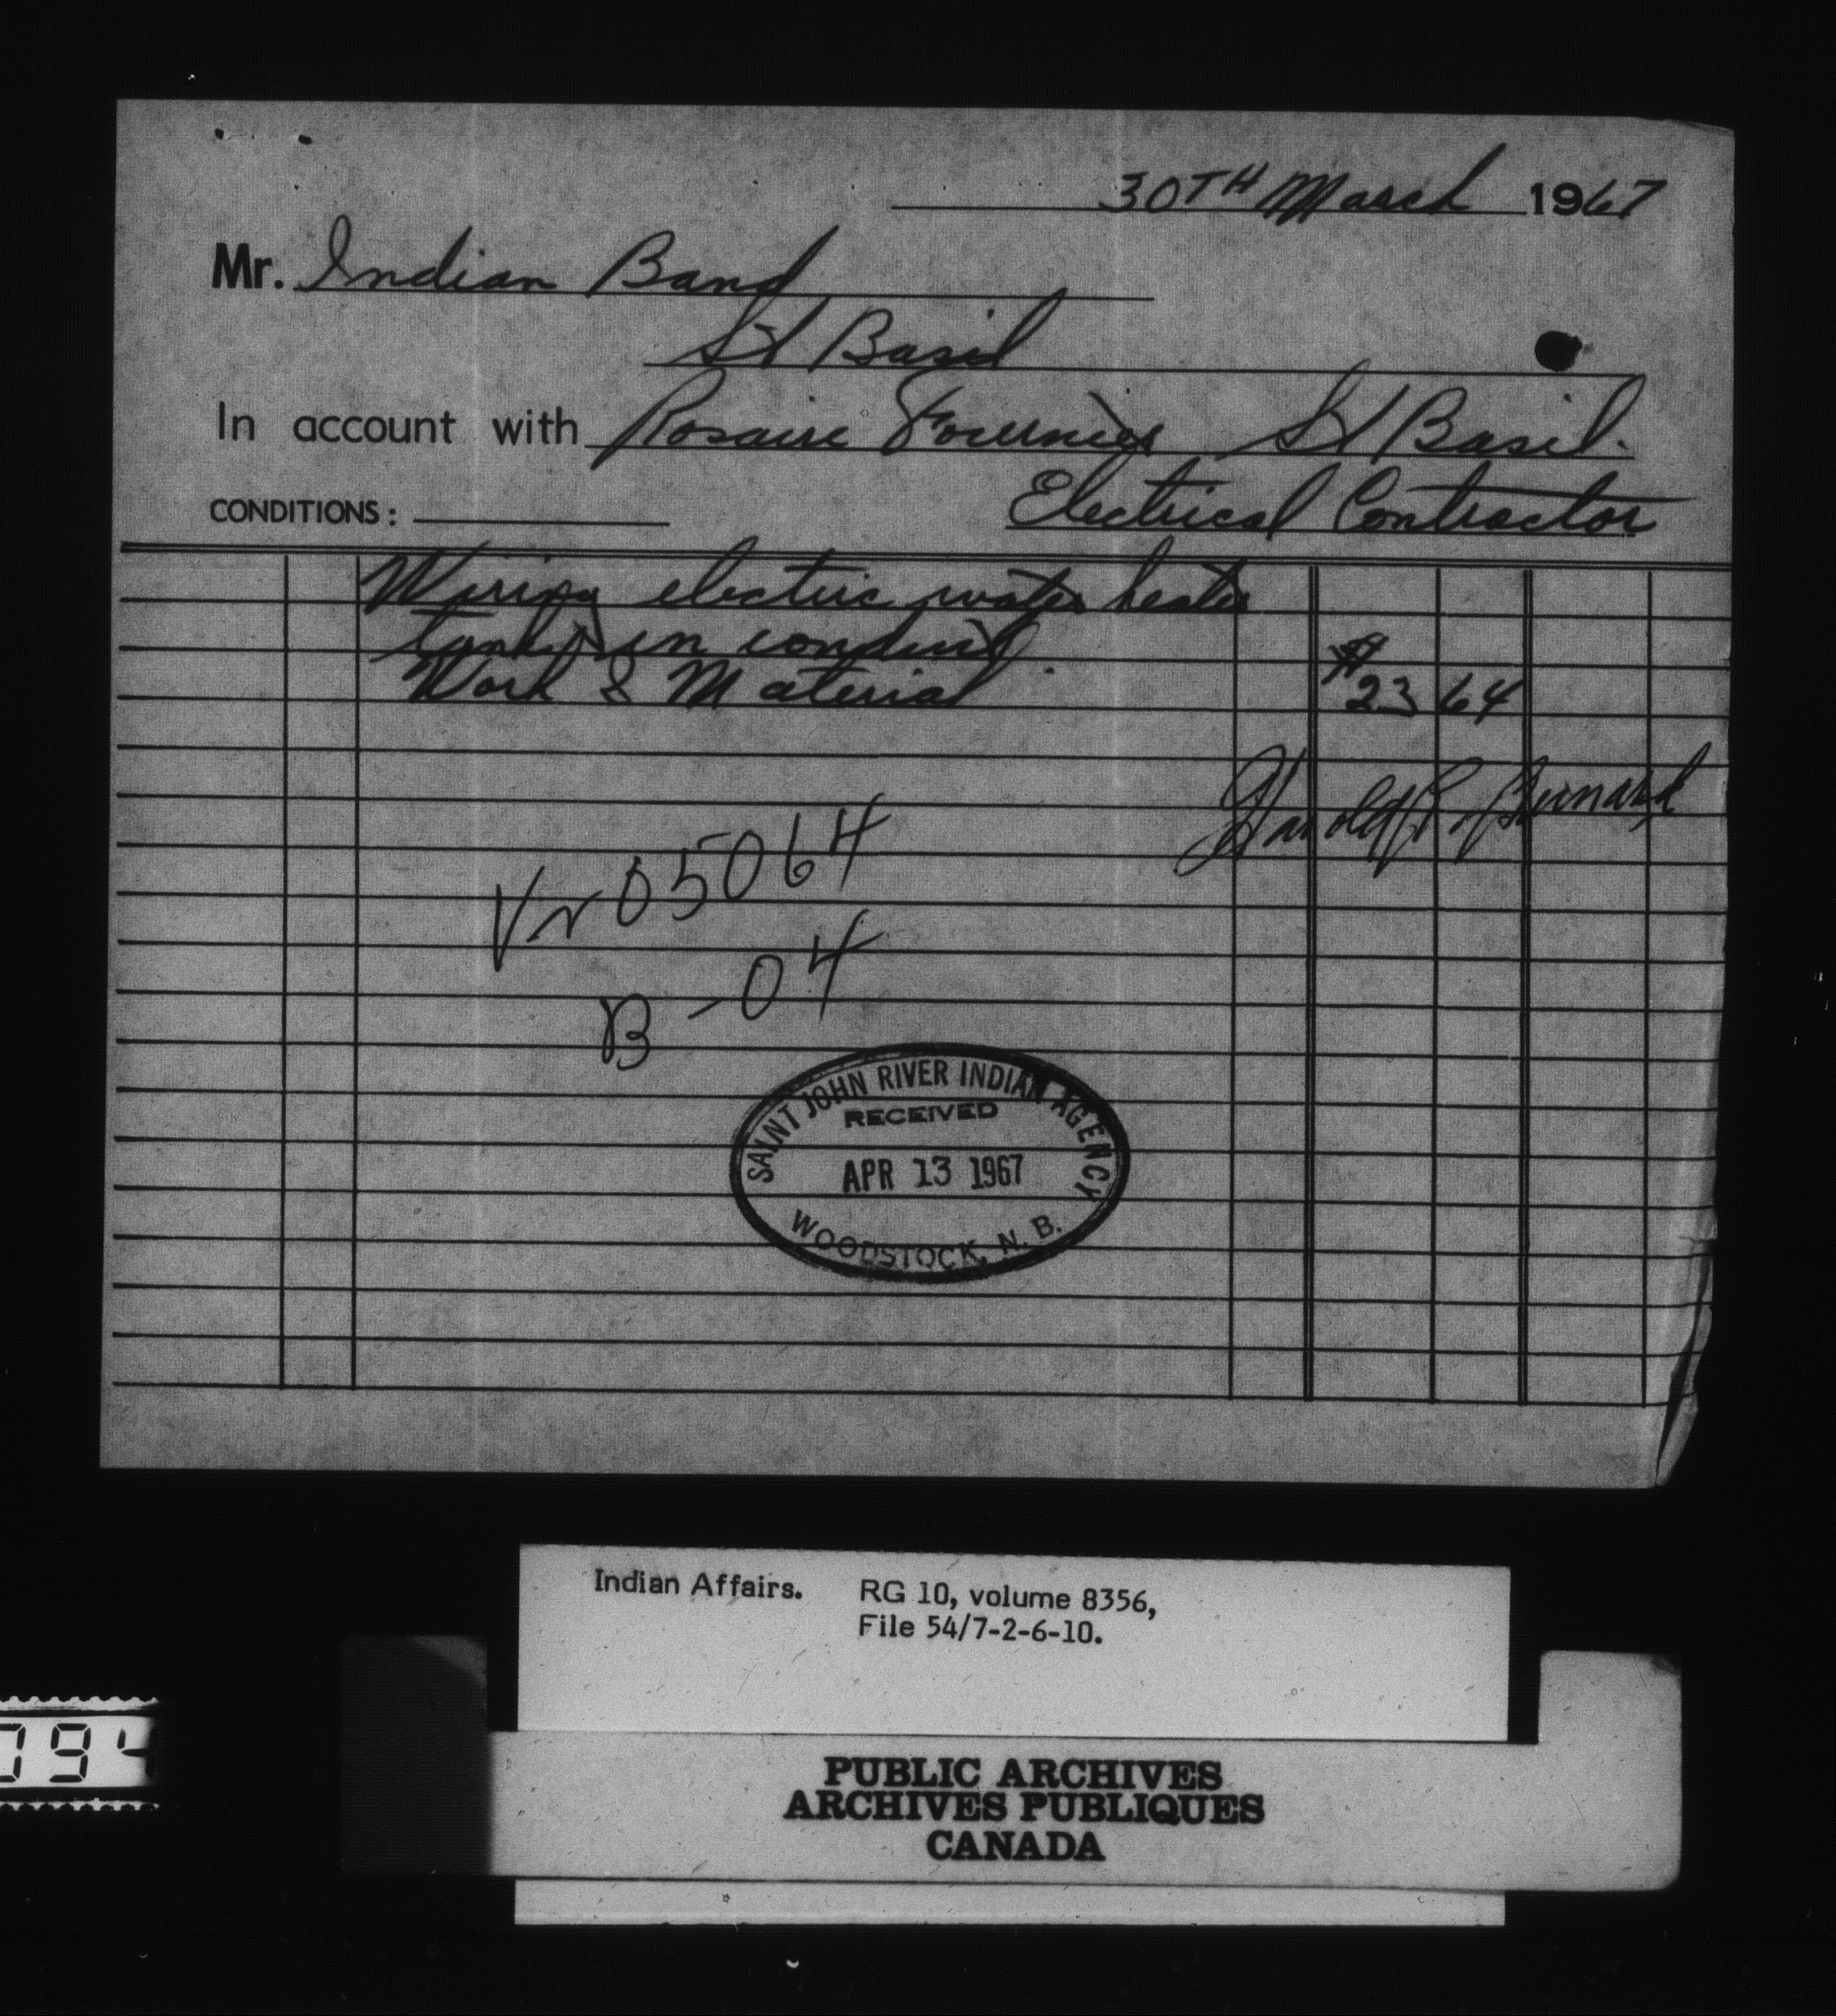 30TH March 1967
Mr. Indian Band
St Basil
In account with Rosaire Fournier St Basil.
CONDITIONS: Electrical Contractor
Wiring electric water heater
tank in conduit
Work & Material $ 23 64
Harold P. Bernard
Vr 05064
B-04
SAINT JOHN RIVER INDIAN AGENCY
RECEIVED
APR 13 1967
WOODSTOCK, N. B.
Indian Affairs. RG 10, volume 8356,
File 54/7-2-6-10.
094
PUBLIC ARCHIVES
ARCHIVES PUBLIQUES
CANADA